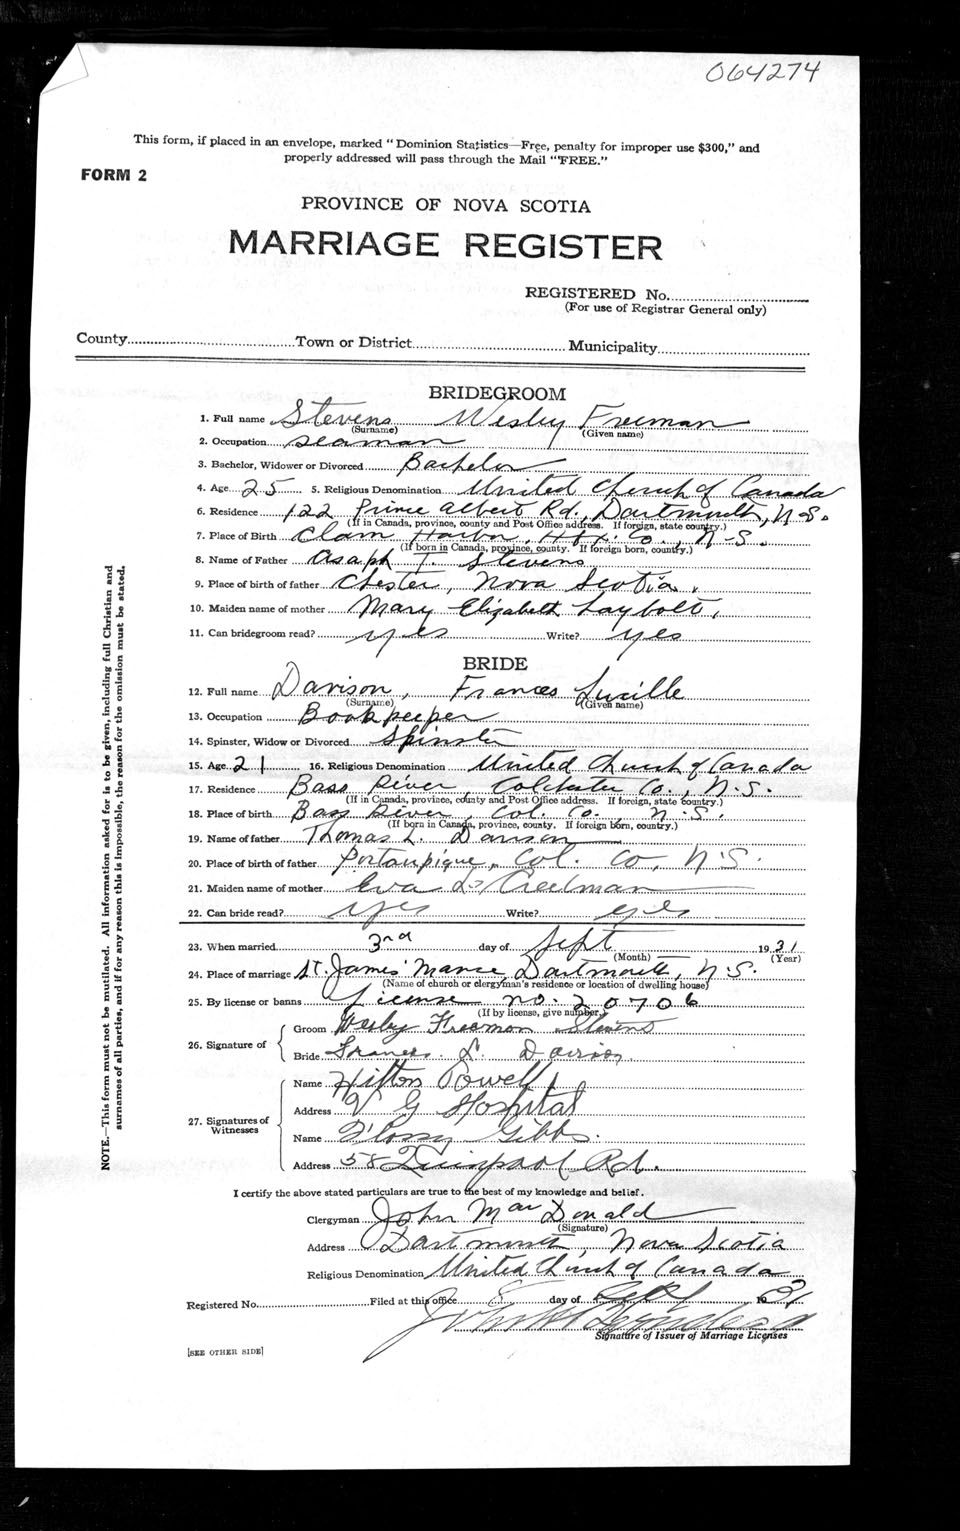 064274
This form, if placed in an envelope, marked "Dominion Statistics—Free, penalty for improper use $300," and
properly addressed will pass through the Mail "FREE."
FORM 2
PROVINCE OF NOVA SCOTIA
MARRIAGE REGISTER
REGISTERED No.
(For use of Registrar General only)
County Town or District Municipality
BRIDEGROOM
1. Full name Stevens Wesley Freeman
(Surname) (Given name)
2. Occupation seaman
3. Bachelor, Widower or Divorced Bachelor
4. Age 25 5. Religious Denomination United Church of Canada
6. Residence 122 Prince Albert Rd., Dartmouth, N.S.
(If in Canada, province, county and Post Office address. If foreign, state country.)
7. Place of Birth Clam Harbor, Hfx. Co., N-S.
(If born in Canada, province, county. If foreign born, country.)
8. Name of Father Asaph T. Stevens
9. Place of birth of father Chester, Nova Scotia.
10. Maiden name of mother Mary Elizabeth Laybolt,
11. Can bridegroom read? yes Write? yes
BRIDE
12. Full name Davison, Frances Lucille
(Surname) (Given name)
13. Occupation Bookkeeper
14. Spinster, Widow or Divorced Spinster
15. Age 21 16. Religious Denomination United Church of Canada
17. Residence Bass River, Colchester Co., N.S.
(If in Canada, province, county and Post Office address. If foreign, state country.)
18. Place of birth Bass River, Col. Co. N.S.
(If born in Canada, province, county. If foreign born, country.)
19. Name of father Thomas L. Davison
20. Place of birth of father Portaupique, Col. Co, N.S.
21. Maiden name of mother Eva L. Creelman
22. Can bride read? yes Write? yes
23. When married 3rd day of Sept 1931
(Month) (Year)
24. Place of marriage St. James' Manse, Dartmouth, N.S.
(Name of church or clergyman's residence or location of dwelling house)
25. By license or banns License no. 20706
(If by license, give number.)
26. Signature of
Groom Wesley Freeman Stevens
Bride Frances. L. Davison.
27. Signatures of Witnesses
Name Hilton Powell
Address V G Hospital
Name Flossy Gibb.
Address 58 Rd.
I certify the above stated particulars are true to the best of my knowledge and belief.
Clergyman John MacDonald
(Signature)
Address Dartmouth, Nova Scotia
Religious Denomination United Church of Canada
Registered No. Filed at this office 8 day of 1931
Signature of Issuer of Marriage Licenses
[SEE OTHER SIDE]
NOTE.—This form must not be mutilated. All information asked for is to be given, including full Christian and
surnames of all parties, and if for any reason this is impossible, the reason for the omission must be stated.